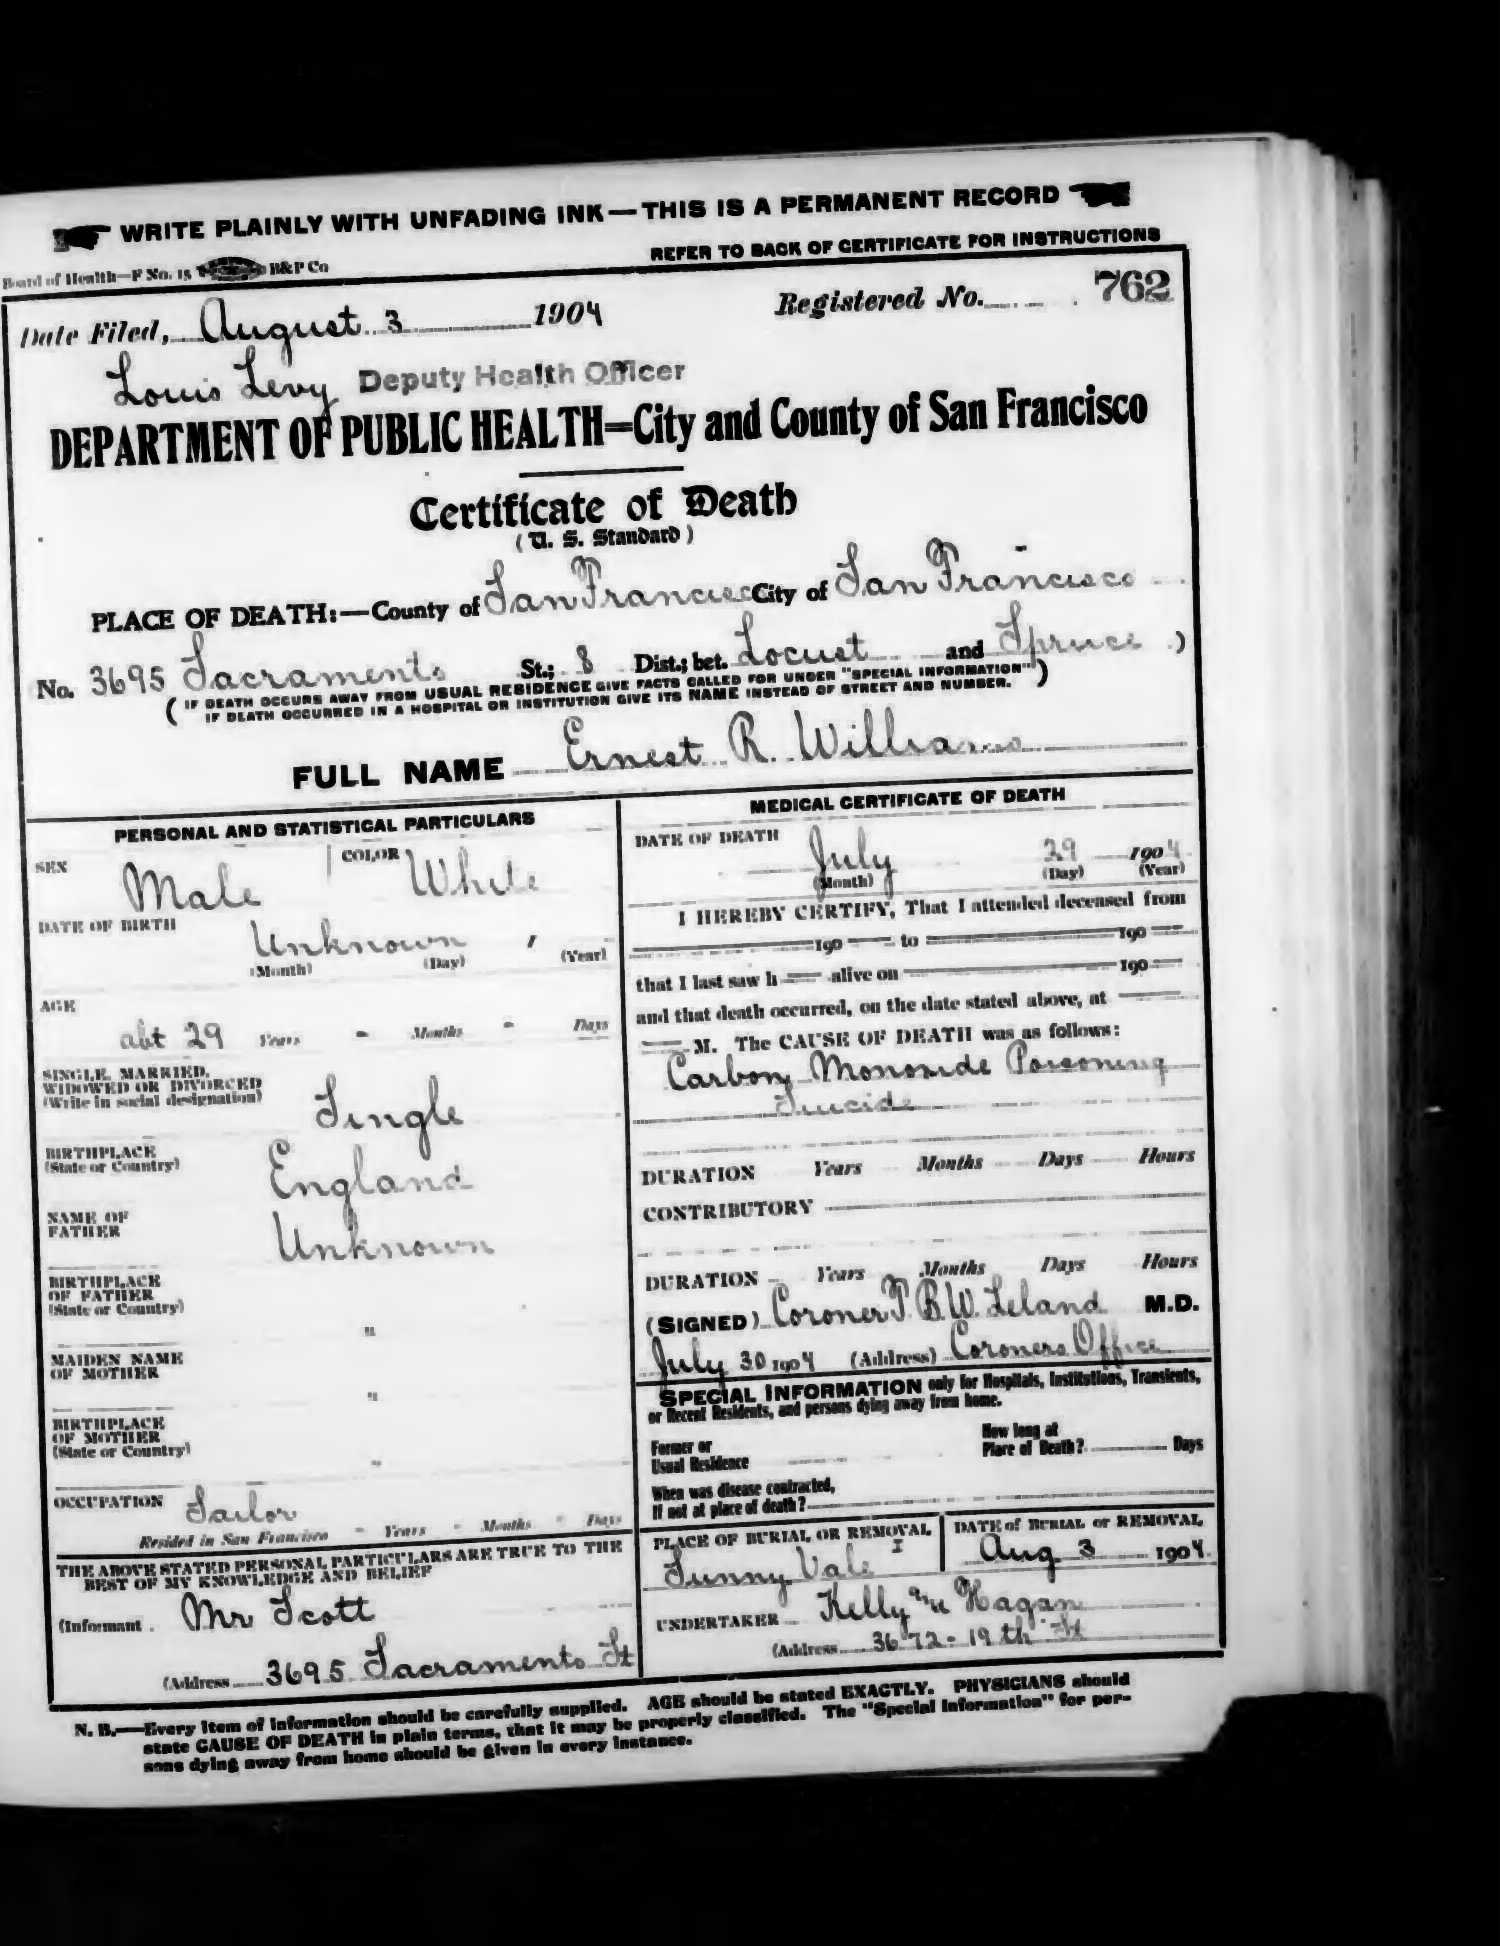 WRITE PLAINLY WITH UNFADING INK—THIS IS A PERMANENT RECORD
REFER TO BACK OF CERTIFICATE FOR INSTRUCTIONS
Board of Health—F No. 15 B&P Co
Date Filed, August 3 1904 Registered No. 762
Louis Levy Deputy Health Officer
DEPARTMENT OF PUBLIC HEALTH=City and County of San Francisco
Certificate of Death
(U. S. Standard)
PLACE OF DEATH:—County of San Francisco City of San Francisco
No. 3695 Sacramento St.; 8 Dist.; bet. Locust and Spruce )
( IF DEATH OCCURS AWAY FROM USUAL RESIDENCE GIVE FACTS CALLED FOR UNDER "SPECIAL INFORMATION" )
IF DEATH OCCURRED IN A HOSPITAL OR INSTITUTION GIVE ITS NAME INSTEAD OF STREET AND NUMBER.
FULL NAME Ernest R. Williams
PERSONAL AND STATISTICAL PARTICULARS
SEX Male COLOR White
DATE OF BIRTH
Unknown
(Month) (Day) (Year)
AGE
abt 29 Years - Months - Days
SINGLE, MARRIED,
WIDOWED OR DIVORCED
(Write in social designation)
Single
BIRTHPLACE
(State or Country)
England
NAME OF
FATHER
Unknown
BIRTHPLACE
OF FATHER
(State or Country)
"
MAIDEN NAME
OF MOTHER
"
BIRTHPLACE
OF MOTHER
(State or Country)
"
OCCUPATION Tailor
Resided in San Francisco - Years - Months - Days
THE ABOVE STATED PERSONAL PARTICULARS ARE TRUE TO THE
BEST OF MY KNOWLEDGE AND BELIEF
(Informant Mr Scott
(Address 3695 Sacramento St
MEDICAL CERTIFICATE OF DEATH
DATE OF DEATH
July 29 1904
(Month) (Day) (Year)
I HEREBY CERTIFY, That I attended deceased from
190 to 190
that I last saw h alive on 190
and that death occurred, on the date stated above, at
M. The CAUSE OF DEATH was as follows:
Carbon Monoxide Poisoning
Suicide
DURATION Years Months Days Hours
CONTRIBUTORY
DURATION Years Months Days Hours
(SIGNED) Coroner T. B. W. Leland M.D.
July 30 1904 (Address) Coroners Office
SPECIAL INFORMATION only for Hospitals, Institutions, Transients,
or Recent Residents, and persons dying away from home.
Former or
Usual Residence
How long at
Place of Death? Days
When was disease contracted,
If not at place of death?
PLACE OF BURIAL OR REMOVAL
Sunny Vale
DATE of BURIAL or REMOVAL
Aug 3 1904
UNDERTAKER Kelly and Hagan
(Address 3672-19th St
N. B.—Every item of information should be carefully supplied. AGE should be stated EXACTLY. PHYSICIANS should
state CAUSE OF DEATH in plain terms, that it may be properly classified. The "Special Information" for per-
sons dying away from home should be given in every instance.